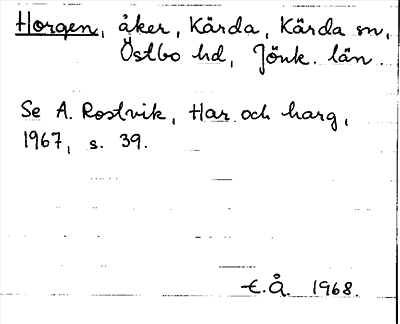 Horgen, åker, Kärda, Kärda sn,
Östbo hd, Jönk. län.
Se A. Rostvik, Har och harg,
1967, s. 39.
E.Å. 1968.